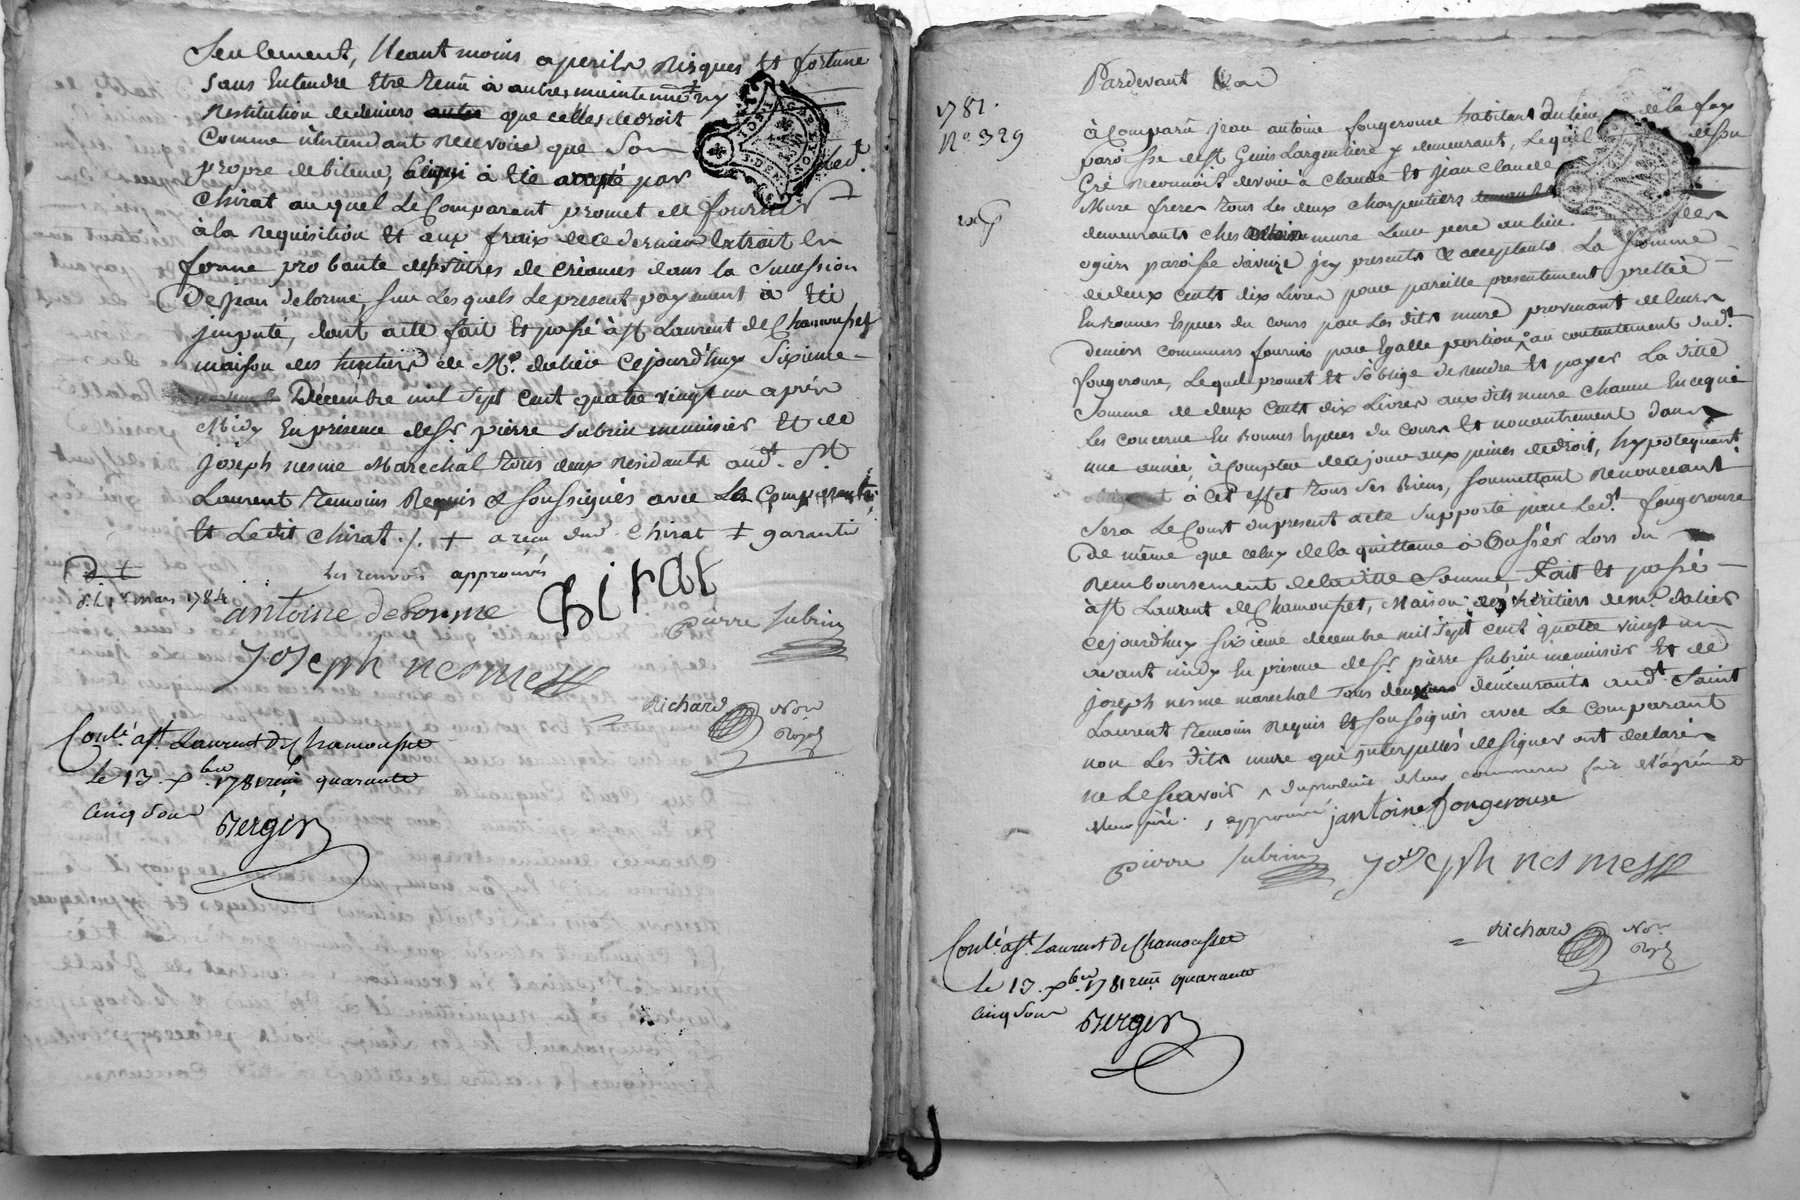 Seulement, Neantmoins a perils Risques et fortune
sans Entendre Etre tenu à autres maintenüe + ny
Restitution de deniers autre que celles de droit
Comme n'entendant Recevoir que Son
propre debiteur, ainsi à été accepté par led.t
Chirat auquel Le Comparant promet de fournir
à la Requisition Et aux fraix de ce dernier Extrait En
forme probante des titres de Créances dans la Sucession
De Jean delorme, sur Lesquels Le present payement à Eté
jmputé, dont acte fait Et passé à St Laurent de Chamousset
maison des heritiers de Mr. dalier Cejourd'huy Sixieme
Décembre mil Sept Cent quatre vingt un après
Midy En présence de Sr. pierre subrin menuisier Et de
joseph nesme Marechal tous deux Residants aud.t St.
Laurent temoins Requis & Soussignés avec Le Comparant
Et Ledit Chirat ./. + a reçu dud. Chirat + garantie
les renvois approuvés
mars 1784
antoine delorme Chirat
pierre subrin
joseph nesme
Richard Nore
Royal
Conlé. a St. Laurent De Chamousset
le 13. xbre. 1781 reçu quarante
cinq Sous
Berger
Pardevant
1781.
N.o 329
à Comparu jean antoine fougerouse habitant du lieu de la fay
paroisse de St Genis Largentiere y demeurant, Lequel de son
Gré Reconnoit devoir à Claude Et jean Claude
Mure freres tous Les deux Charpentiers
demeurants Ches mure Leur pere au lieu des
ogiers paroisse d'aveize jcy presents & acceptants La Somme
de deux Cents dix Livres pour pareille presentement prettée
En bonnes Especes du Cours par Les dits mure provenant de leurs
deniers communs fournis par Egalle portion, au contentement dud.t
fougerouse, Lequel promet Et s'oblige de rendre Et payer La ditte
Somme de deux Cents dix Livres aux dits mure Chacun En ce qui
Les Concerne En bonnes Especes du Cours Et non autrement dans
une année à Compter de ce jour aux peines de droit, hypotequant
à cet effet tous Ses Biens, soumettant Renonceant
Sera Le Cout du present acte Supporté par Led.t fougerouse
De même que celuy de la quittance à Passer Lors du
Remboursement de la ditte Somme, Fait Et passé
à St Laurent de Chamousset, Maison des héritiers de mr. dalier
Cejourd'huy Sixieme decembre mil Sept Cent quatre vingt un
avant midy En présence de Sr. pierre subrin menuisier Et de
joseph nesme marechal tous deux demeurants aud.t Saint
Laurent temoins Requis Et Soussignés avec Le Comparant
non Les dits mure qui jnterpellés de signer ont declaré
ne Le Scavoir, du produit de leur commerce fait de l'agrément
de leur pere. approuvé jantoine fougerouse
pierre subrin joseph nesme
Richard Nore
Royal
Conlé. a St. Laurent De Chamousset
le 13. xbre. 1781 reçu quarante
cinq Sous
Berger